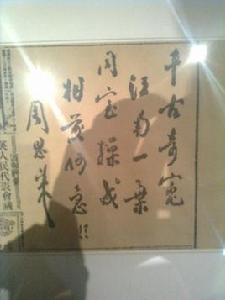 千古奇冤
江南一葉
同室操戈
相煎何急??
周恩来
人民代表會議